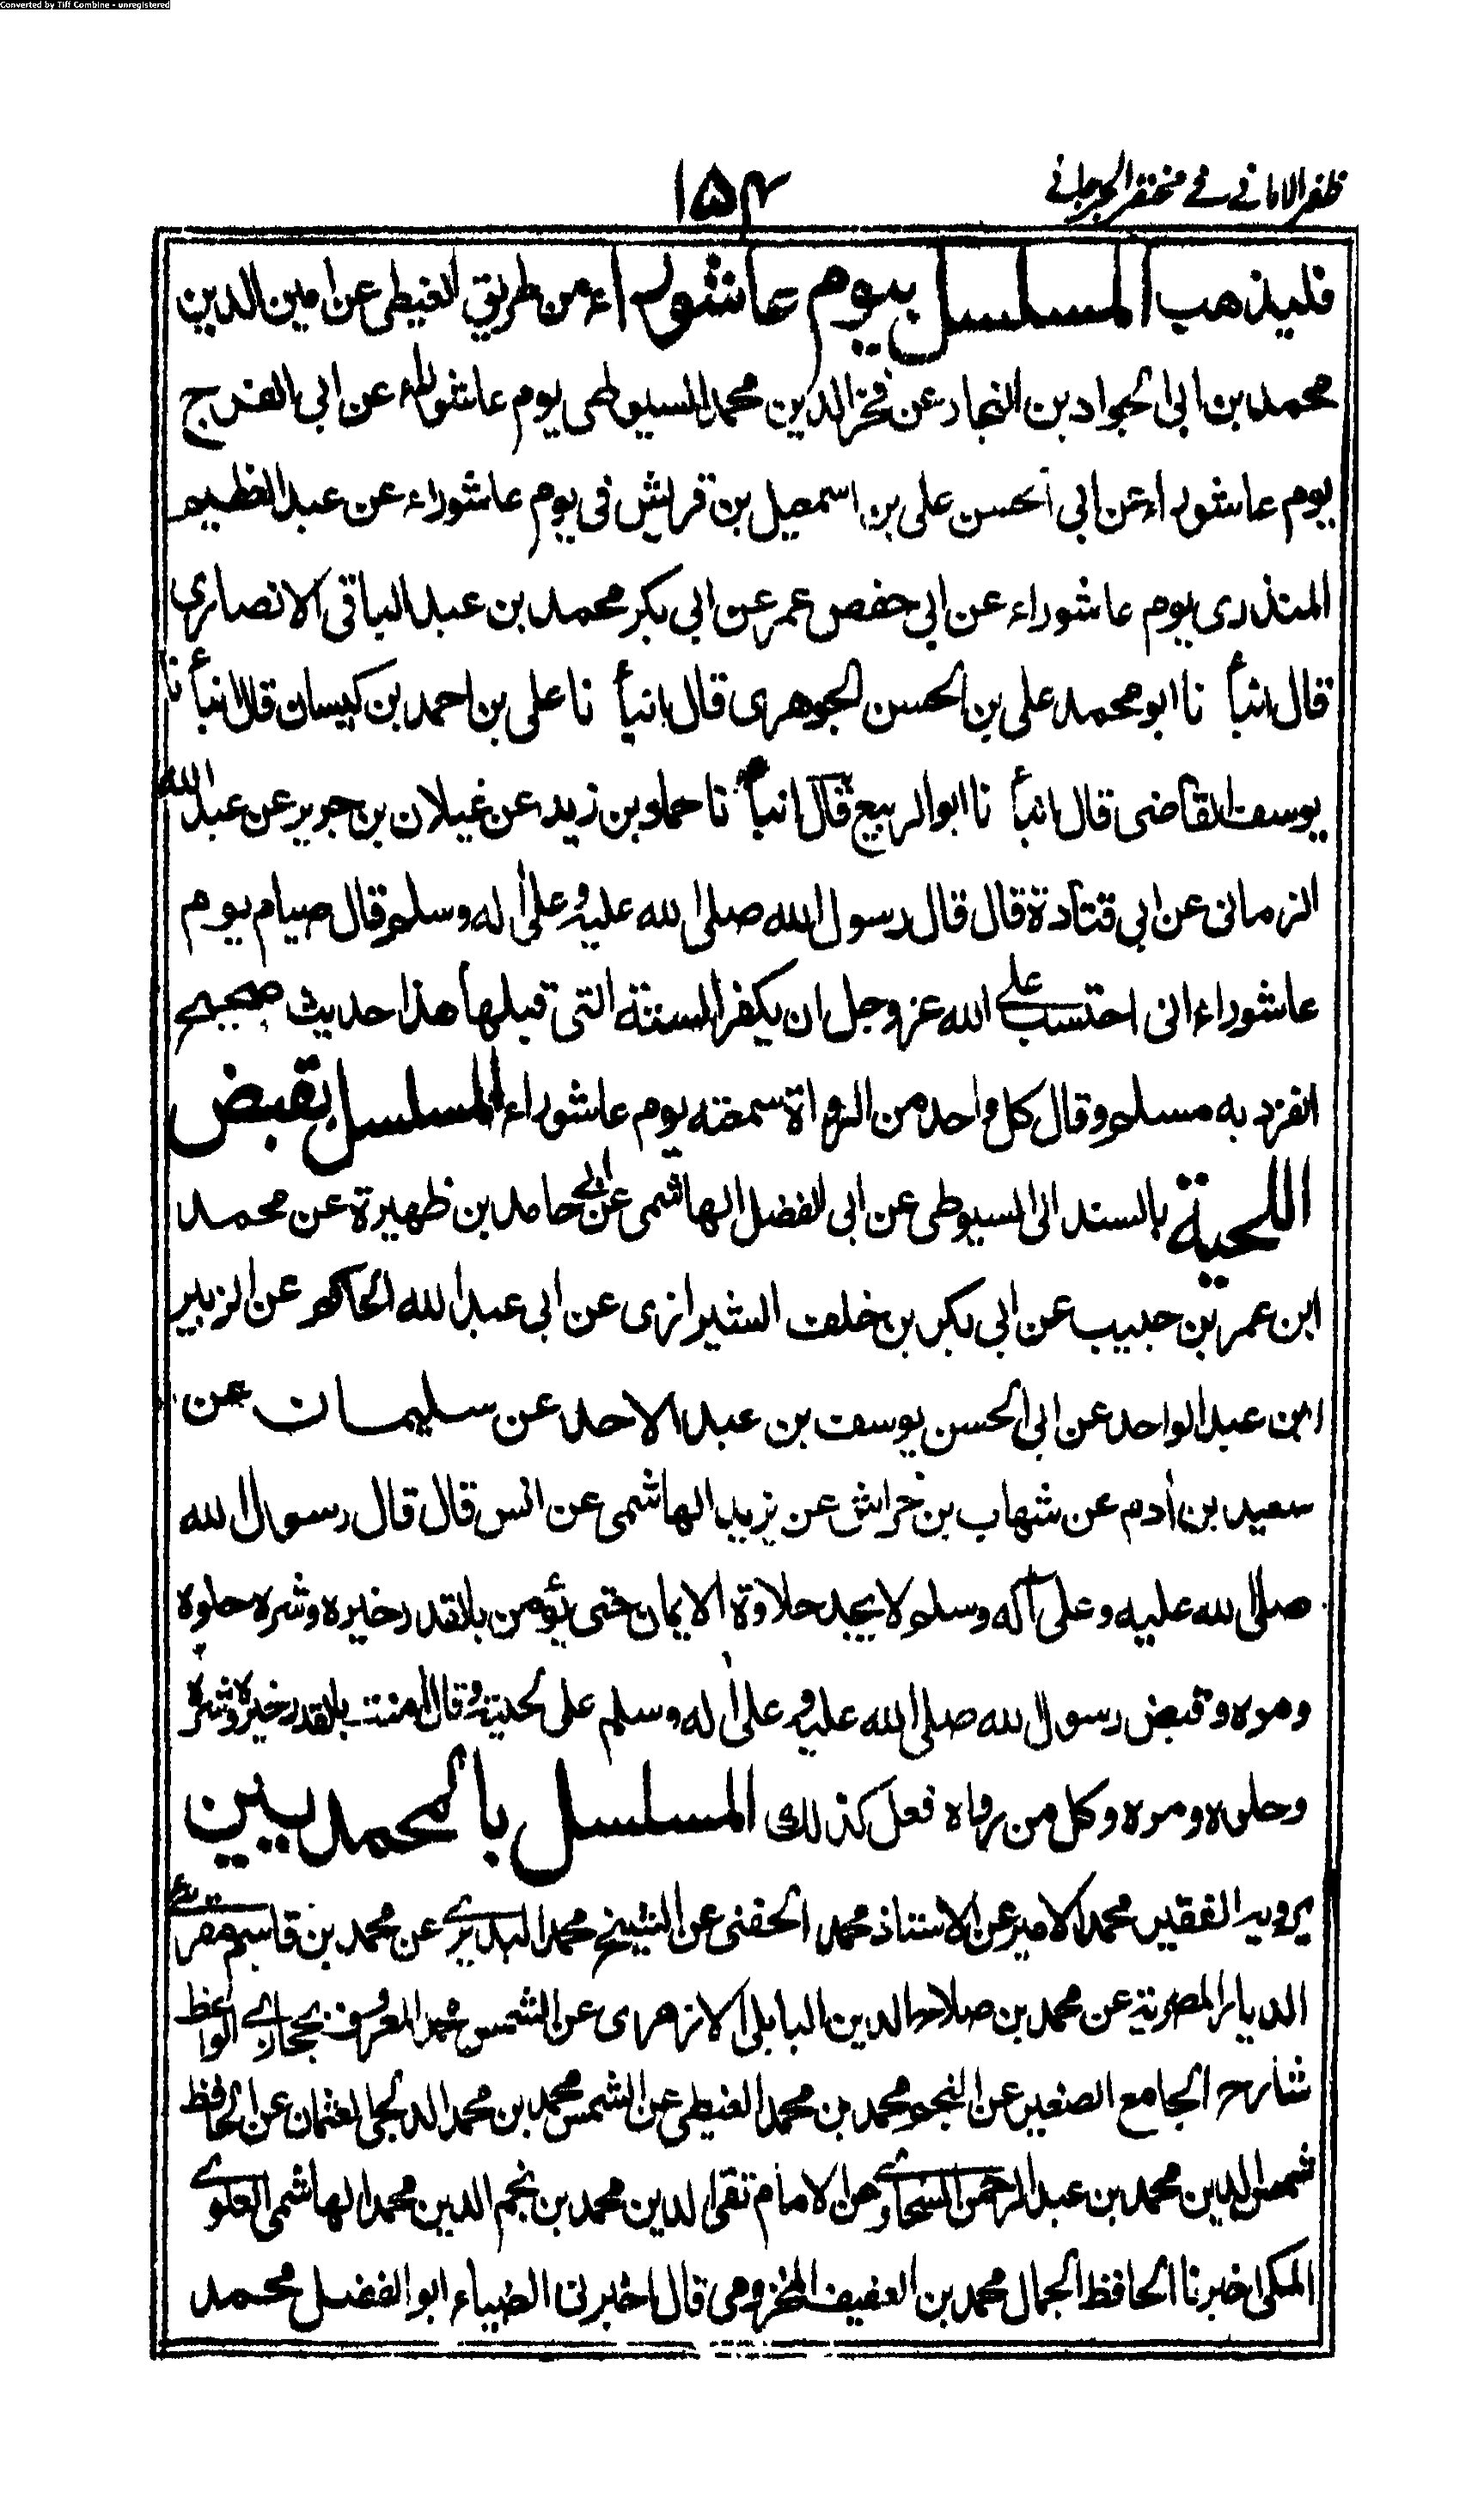 Converted by Tiff Combine - unregistered
ظفر الامانی فے مختصر الجرجانے
۱۵۴
فلیذهب المسلسل بیوم عاشوراء من طریق الغیطی عن امین الدین
محمد بن ابی الجواد بن النجار عن فخر الدین محمد السیوطی یوم عاشوراء عن ابی الفرج
یوم عاشوراء عن ابی الحسن علی بن اسمعیل بن قریش فی یوم عاشوراء عن عبد العظیم
المنذری یوم عاشوراء عن ابی حفص عمر عن ابی بکر محمد بن عبد الباقی الانصاری
قال انبأ نا ابو محمد علی بن الحسن الجوهری قال انبأ نا علی بن احمد بن کیسان قال انبأ نا
یوسف القاضی قال انبأ نا ابو الربیع قال انبأ نا حماد بن زید عن غیلان بن جریر عن عبد الله
الزمانی عن ابی قتادة قال قال رسول الله صلی الله علیه وعلی اٰله وسلم قال صیام یوم
عاشوراء انی احتسب علی الله عز وجل ان یکفر السنة التی قبلها هذا حدیث صحیح
انفرد به مسلم وقال کل واحد من الرواة سمعته یوم عاشوراء المسلسل بقبض
اللحیة بالسند الی السیوطی عن ابی الفضل الهاشمی عن ابی حامد بن ظهیرة عن محمد
ابن عمر بن حبیب عن ابی بکر بن خلف الشیرازی عن ابی عبد الله الحاکم عن الزبیر
ابن عبد الواحد عن ابی الحسن یوسف بن عبد الاحد عن سلیمان عن
سعید بن اٰدم عن شهاب بن خراش عن یزید الهاشمی عن انس قال قال رسول الله
صلی الله علیه وعلی آله وسلم لا یجد حلاوة الایمان حتی یؤمن بالقدر خیره وشره حلوه
ومره وقبض رسول الله صلی الله علیه وعلی اٰله وسلم علی لحیته وقال اٰمنت بالقدر خیره وشره
وحلوه ومره وکل من رواه فعل کذلك المسلسل بالمحمدیین
یرویه الفقیر محمد الامیر عن الاستاذ محمد الحفنی عن الشیخ محمد البدیری عن محمد بن قاسم
الدیار المصریة عن محمد بن صلاح الدین البابلی الازهری عن الشمس محمد المعروف بحجازی الواعظ
شارح الجامع الصغیر عن النجم محمد بن محمد الغیطی عن الشمس محمد بن محمد الدلجی العثمان عن الحافظ
شمس الدین محمد بن عبد الرحمن السخاوی عن الامام تقی الدین محمد بن نجم الدین محمد الهاشمی العلوی
المکی اخبرنا الحافظ الجمال محمد بن العفیف المخزومی قال اخبرنی الضیاء ابو الفضل محمد